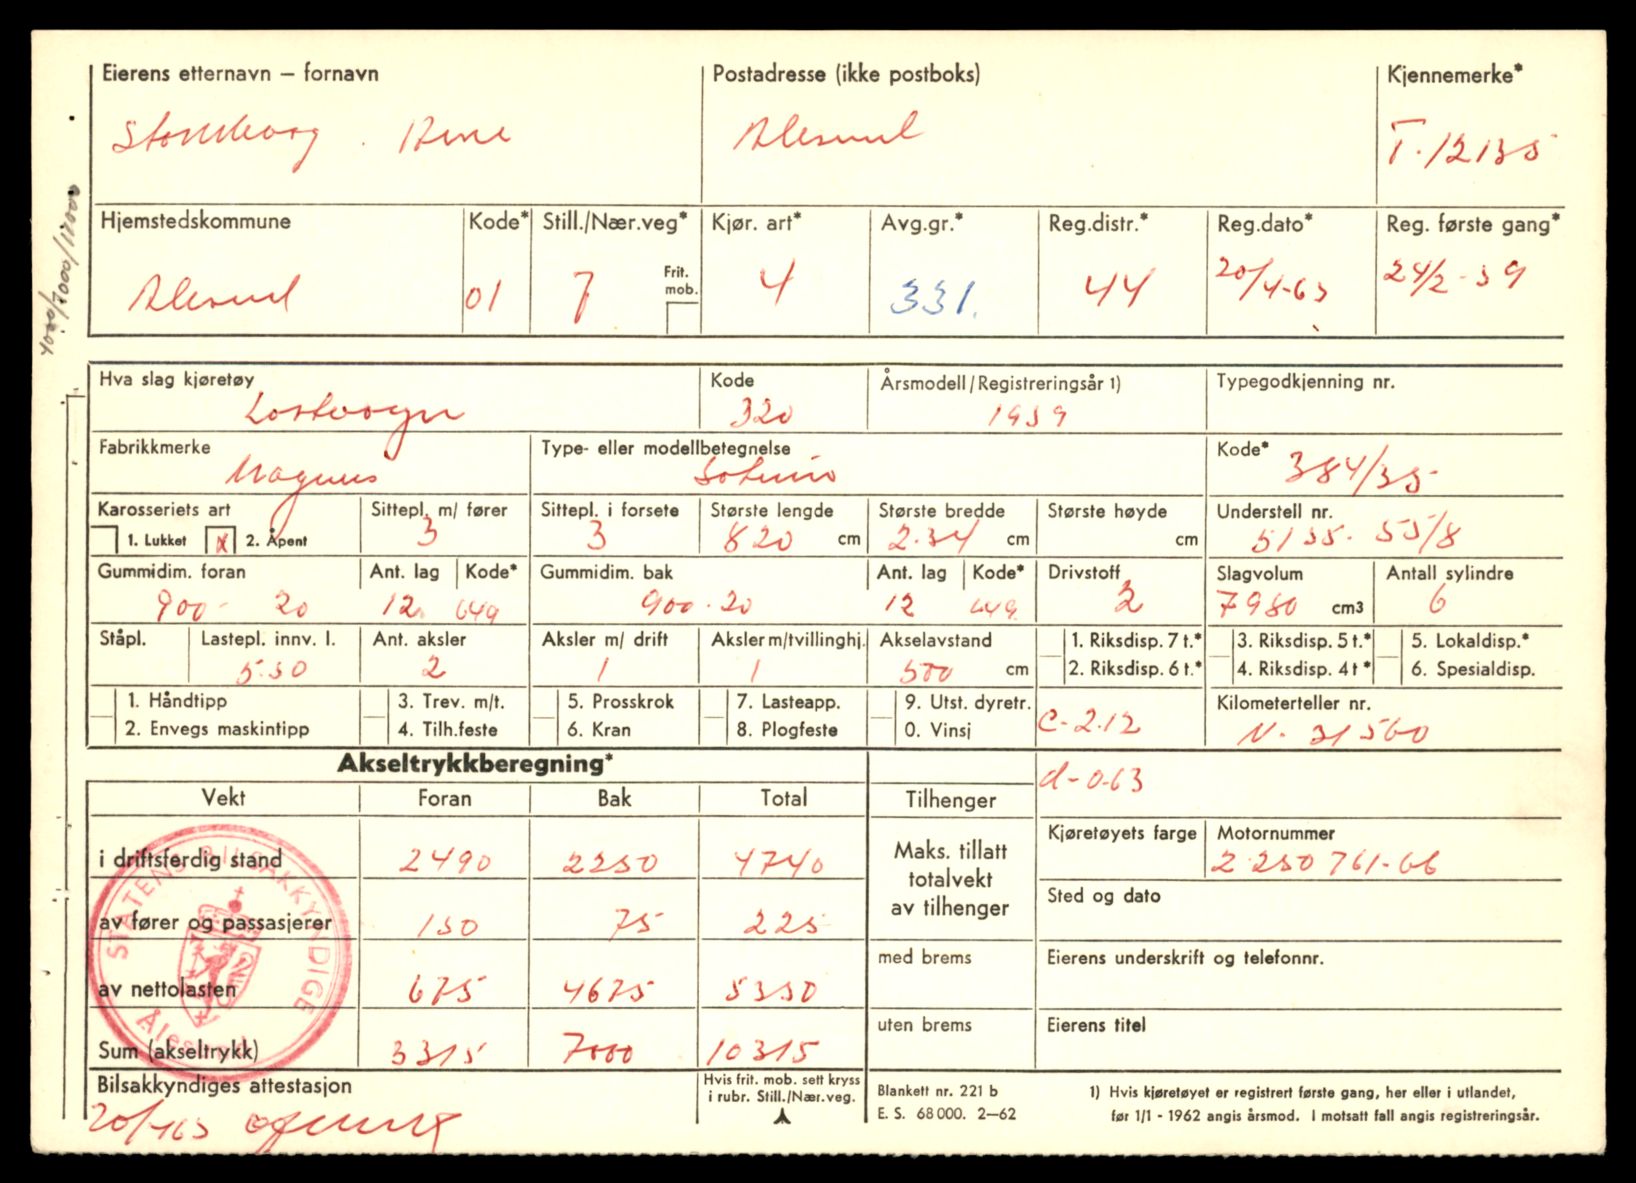 Eierens etternavn – fornavn
Postadresse (ikke postboks)
Kjennemerke*
T-12135
Hjemstedskommune
Kode*
Still./Nær.veg*
Kjør. art*
Avg.gr.*
Reg.distr.*
Reg.dato*
Reg. første gang*
Alesund
01
7
Frit. mob.
4
331.
44
20/4-63
24/2-59
Hva slag kjøretøy
Kode
Årsmodell/Registreringsår 1)
Typegodkjenning nr.
Lastevogn
320
1959
Fabrikkmerke
Type- eller modellbetegnelse
Kode*
Magirus
384/35
Karosseriets art
Sittepl. m/ fører
Sittepl. i forsete
Største lengde
Største bredde
Største høyde
Understell nr.
1. Lukket
x 2. Åpent
3
3
820 cm
2.34 cm
cm
5135-5518
Gummidim. foran
Ant. lag
Kode*
Gummidim. bak
Ant. lag
Kode*
Drivstoff
Slagvolum
Antall sylindre
900-20
12
649
900-20
12
649
2
7980 cm3
6
Ståpl.
Lastepl. innv. l.
Ant. aksler
Aksler m/ drift
Aksler m/tvillinghj.
Akselavstand
1. Riksdisp. 7 t.*
3. Riksdisp. 5 t.*
5. Lokaldisp.*
5.50
2
1
1
500 cm
2. Riksdisp. 6 t.*
4. Riksdisp. 4 t*
6. Spesialdisp.
1. Håndtipp
3. Trev. m/t.
5. Prosskrok
7. Lasteapp.
9. Utst. dyretr.
Kilometerteller nr.
2. Envegs maskintipp
4. Tilh.feste
6. Kran
8. Plogfeste
0. Vinsj
C-2.12
N. 31560
Akseltrykkberegning*
d-0.63
Vekt
Foran
Bak
Total
Tilhenger
Kjøretøyets farge
Motornummer
i driftsferdig stand
2490
2250
4740
Maks. tillatt
totalvekt
av tilhenger
2250761-66
Sted og dato
av fører og passasjerer
150
75
225
med brems
Eierens underskrift og telefonnr.
av nettolasten
675
4675
5350
uten brems
Eierens titel
Sum (akseltrykk)
3315
7000
10315
STATENS BILSAKKYNDIGE
Ålesund
Bilsakkyndiges attestasjon
Hvis frit. mob. sett kryss
i rubr. Still./Nær.veg.
20/4 63
Blankett nr. 221 b
E. S. 68000. 2–62
1) Hvis kjøretøyet er registrert første gang, her eller i utlandet,
før 1/1 - 1962 angis årsmod. I motsatt fall angis registreringsår.